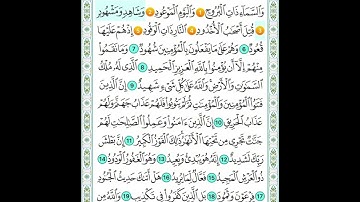 وَالسَّمَاءِ ذَاتِ الْبُرُوجِ 1 وَالْيَوْمِ الْمَوْعُودِ 2 وَشَاهِدٍ وَمَشْهُودٍ
3 قُتِلَ أَصْحَابُ الْأُخْدُودِ 4 النَّارِ ذَاتِ الْوَقُودِ 5 إِذْ هُمْ عَلَيْهَا
قُعُودٌ 6 وَهُمْ عَلَىٰ مَا يَفْعَلُونَ بِالْمُؤْمِنِينَ شُهُودٌ 7 وَمَا نَقَمُوا
مِنْهُمْ إِلَّا أَن يُؤْمِنُوا بِاللَّهِ الْعَزِيزِ الْحَمِيدِ 8 الَّذِي لَهُ مُلْكُ
السَّمَاوَاتِ وَالْأَرْضِ وَاللَّهُ عَلَىٰ كُلِّ شَيْءٍ شَهِيدٌ 9 إِنَّ الَّذِينَ
فَتَنُوا الْمُؤْمِنِينَ وَالْمُؤْمِنَاتِ ثُمَّ لَمْ يَتُوبُوا فَلَهُمْ عَذَابُ جَهَنَّمَ وَلَهُمْ
عَذَابُ الْحَرِيقِ 10 إِنَّ الَّذِينَ آمَنُوا وَعَمِلُوا الصَّالِحَاتِ لَهُمْ
جَنَّاتٌ تَجْرِي مِن تَحْتِهَا الْأَنْهَارُ ذَٰلِكَ الْفَوْزُ الْكَبِيرُ 11 إِنَّ بَطْشَ
رَبِّكَ لَشَدِيدٌ 12 إِنَّهُ هُوَ يُبْدِئُ وَيُعِيدُ 13 وَهُوَ الْغَفُورُ الْوَدُودُ 14
ذُو الْعَرْشِ الْمَجِيدُ 15 فَعَّالٌ لِّمَا يُرِيدُ 16 هَلْ أَتَاكَ حَدِيثُ الْجُنُودِ
17 فِرْعَوْنَ وَثَمُودَ 18 بَلِ الَّذِينَ كَفَرُوا فِي تَكْذِيبٍ 19 وَاللَّهُ مِن